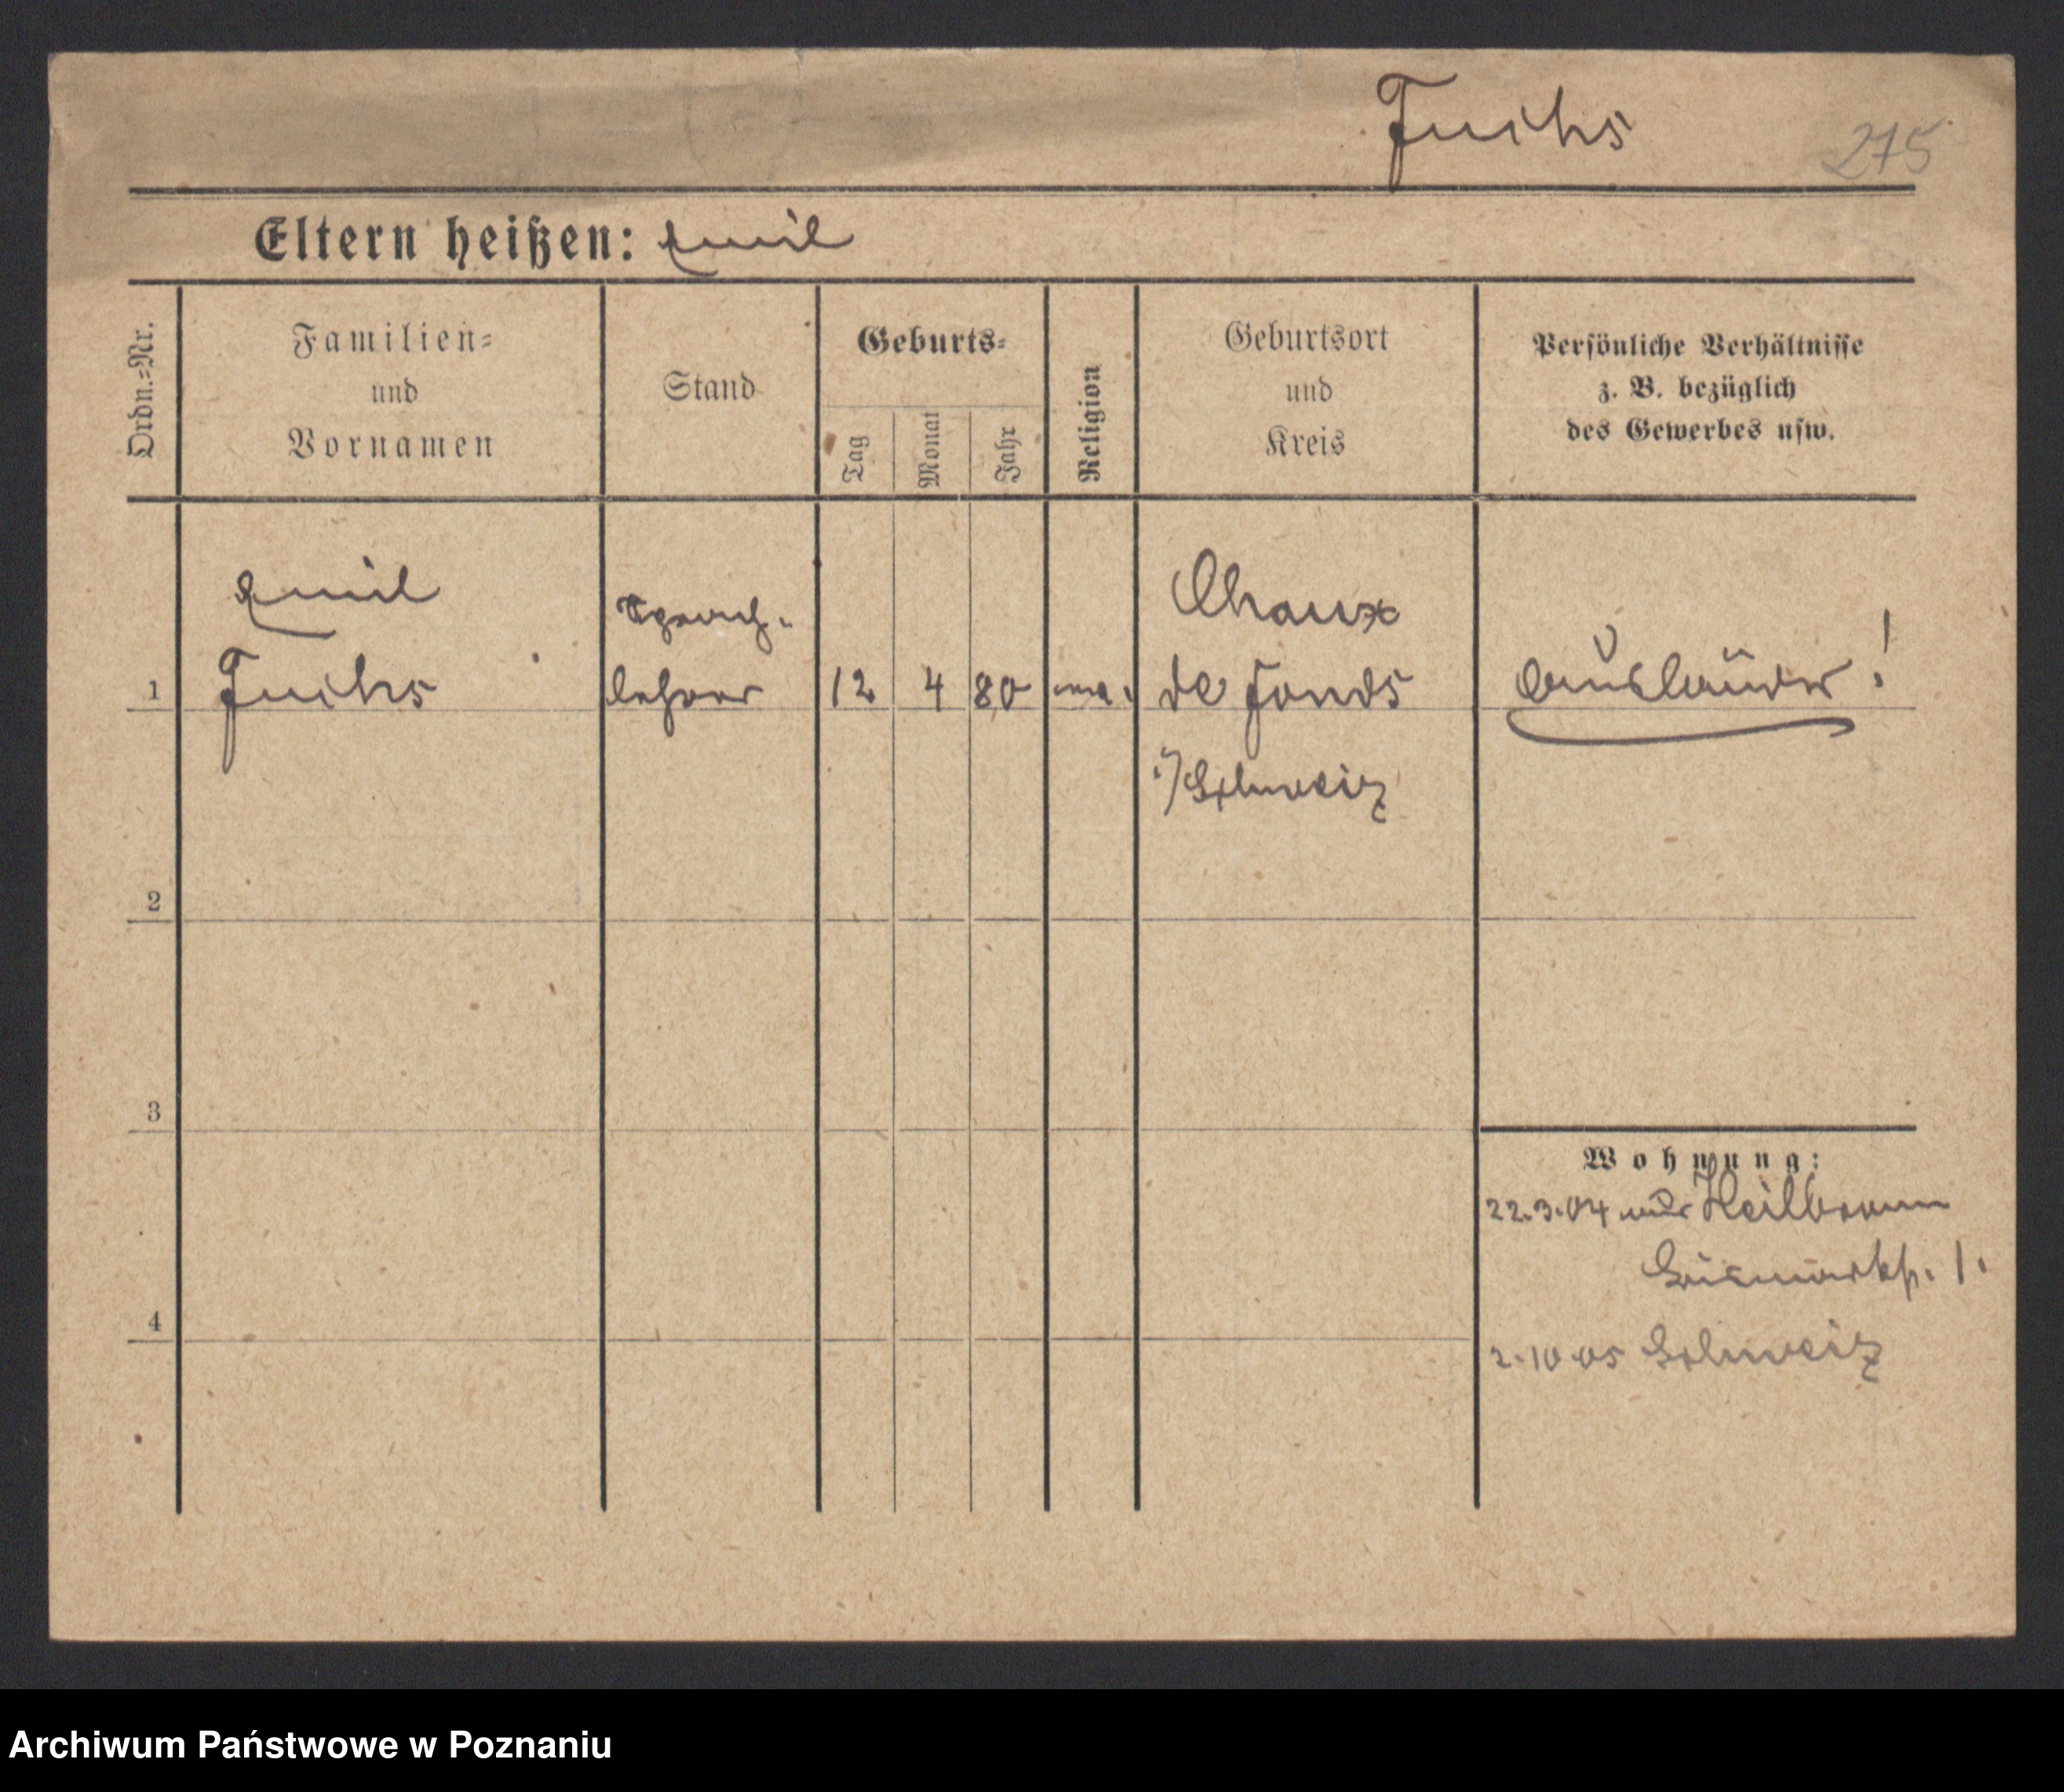 Fuchs
275
Eltern heißen: Emil
Ordn.-Nr.
Familien-
und
Vornamen
Stand
Geburts-
Tag
Monat
Jahr
Religion
Geburtsort
und
Kreis
Persönliche Verhältnisse
z. B. bezüglich
des Gewerbes usw.
Emil
Sprach-
Chaux
1 Fuchs lehrer 12 4 80 de Fonds Ausländer!
i/Schweiz
2
3
Wohnung:
22.3.04 Heilbronn
Bismarckstr. 1.
4
2.10.05 Schweiz
Archiwum Państwowe w Poznaniu